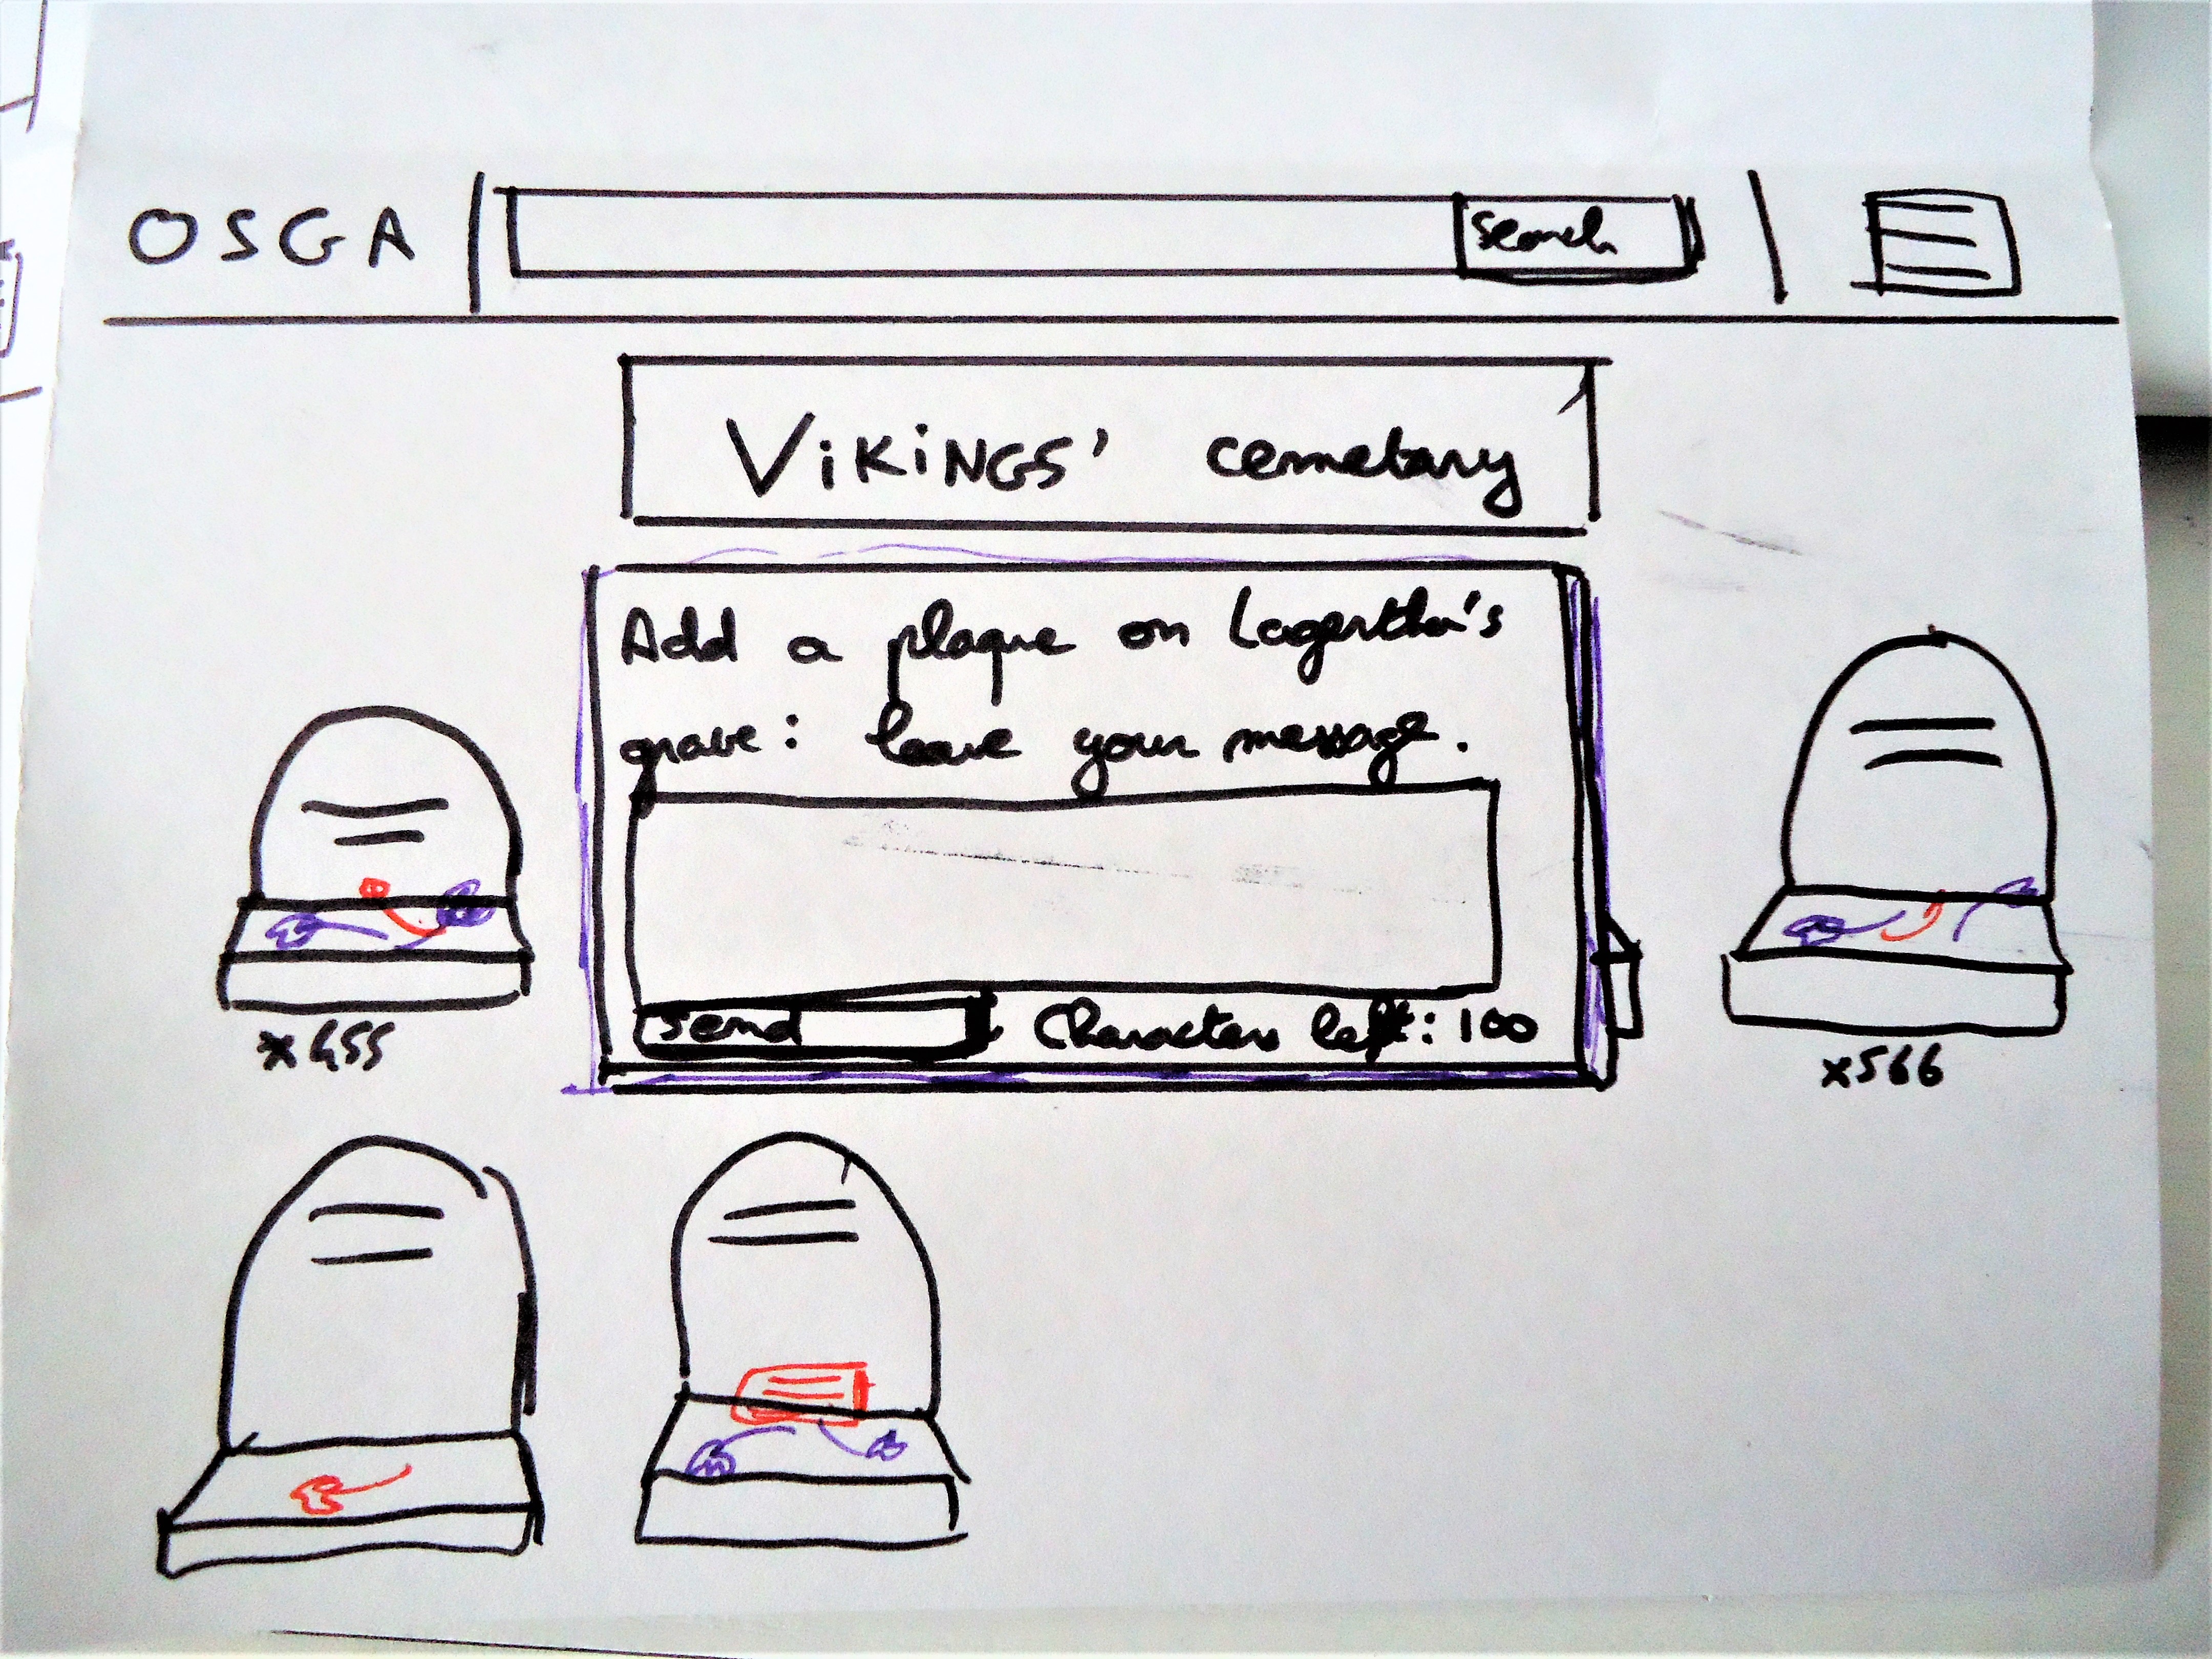 OSGA
Search
VIKINGS' cemetary
Add a plaque on Lagertha's
grave: leave your message.
Send
Characters left: 100
x455
x566